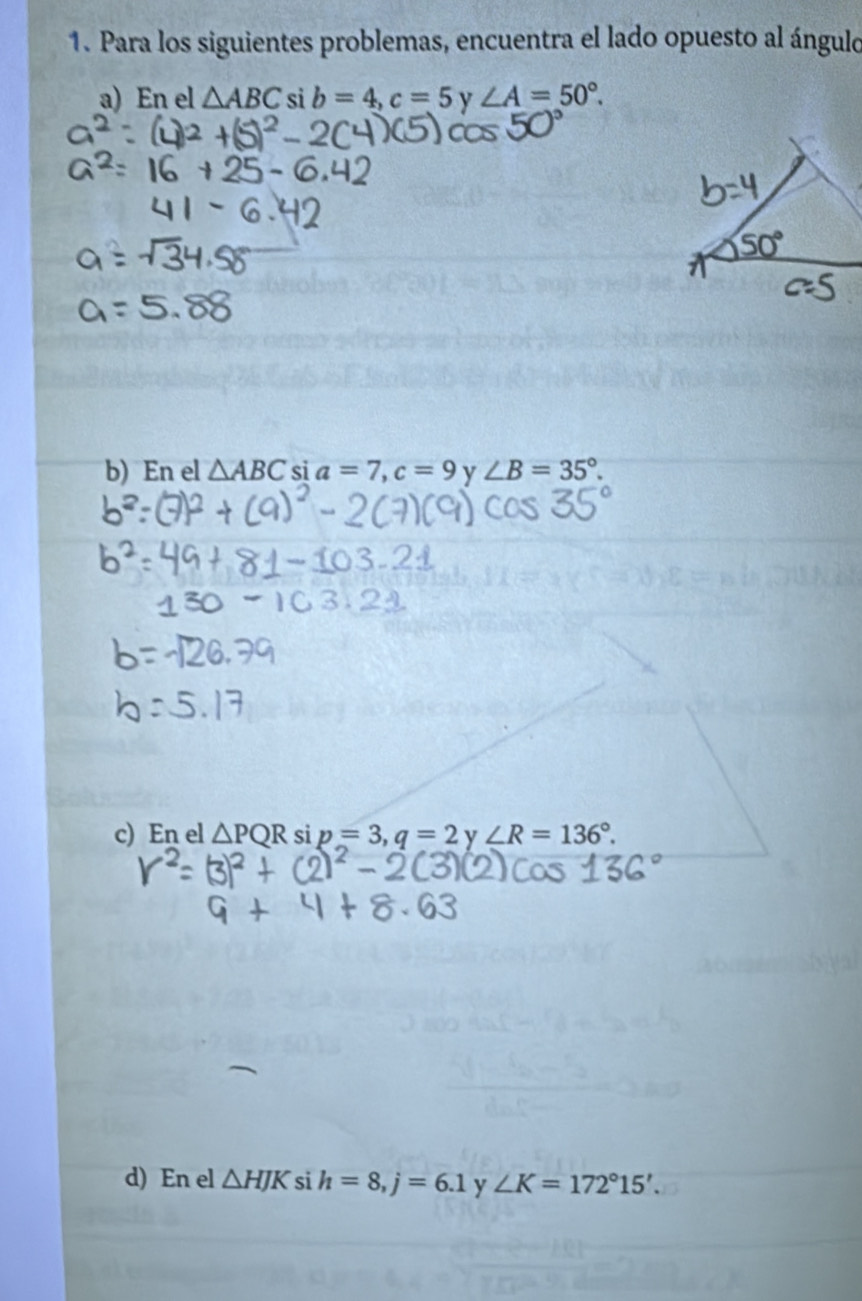 1. Para los siguientes problemas, encuentra el lado opuesto al ángulo
a) En el △ABC si b = 4, c = 5 y ∠A = 50°.
a² = (4)² + (5)² - 2(4)(5) cos 50°
a² = 16 + 25 - 6.42
41 - 6.42
a = √34.58
a = 5.88
b=4
50°
A
c=5
b) En el △ABC si a = 7, c = 9 y ∠B = 35°.
b² = (7)² + (9)² - 2(7)(9) cos 35°
b² = 49 + 81 - 103.21
130 - 103.21
b = √26.79
b = 5.17
c) En el △PQR si p = 3, q = 2 y ∠R = 136°.
r² = (3)² + (2)² - 2(3)(2) cos 136°
9 + 4 + 8.63
d) En el △HJK si h = 8, j = 6.1 y ∠K = 172°15′.